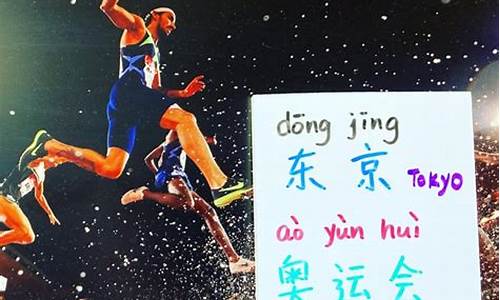 dōng jīng
东 京 Tokyo
ào yùn huì
奥 运 会